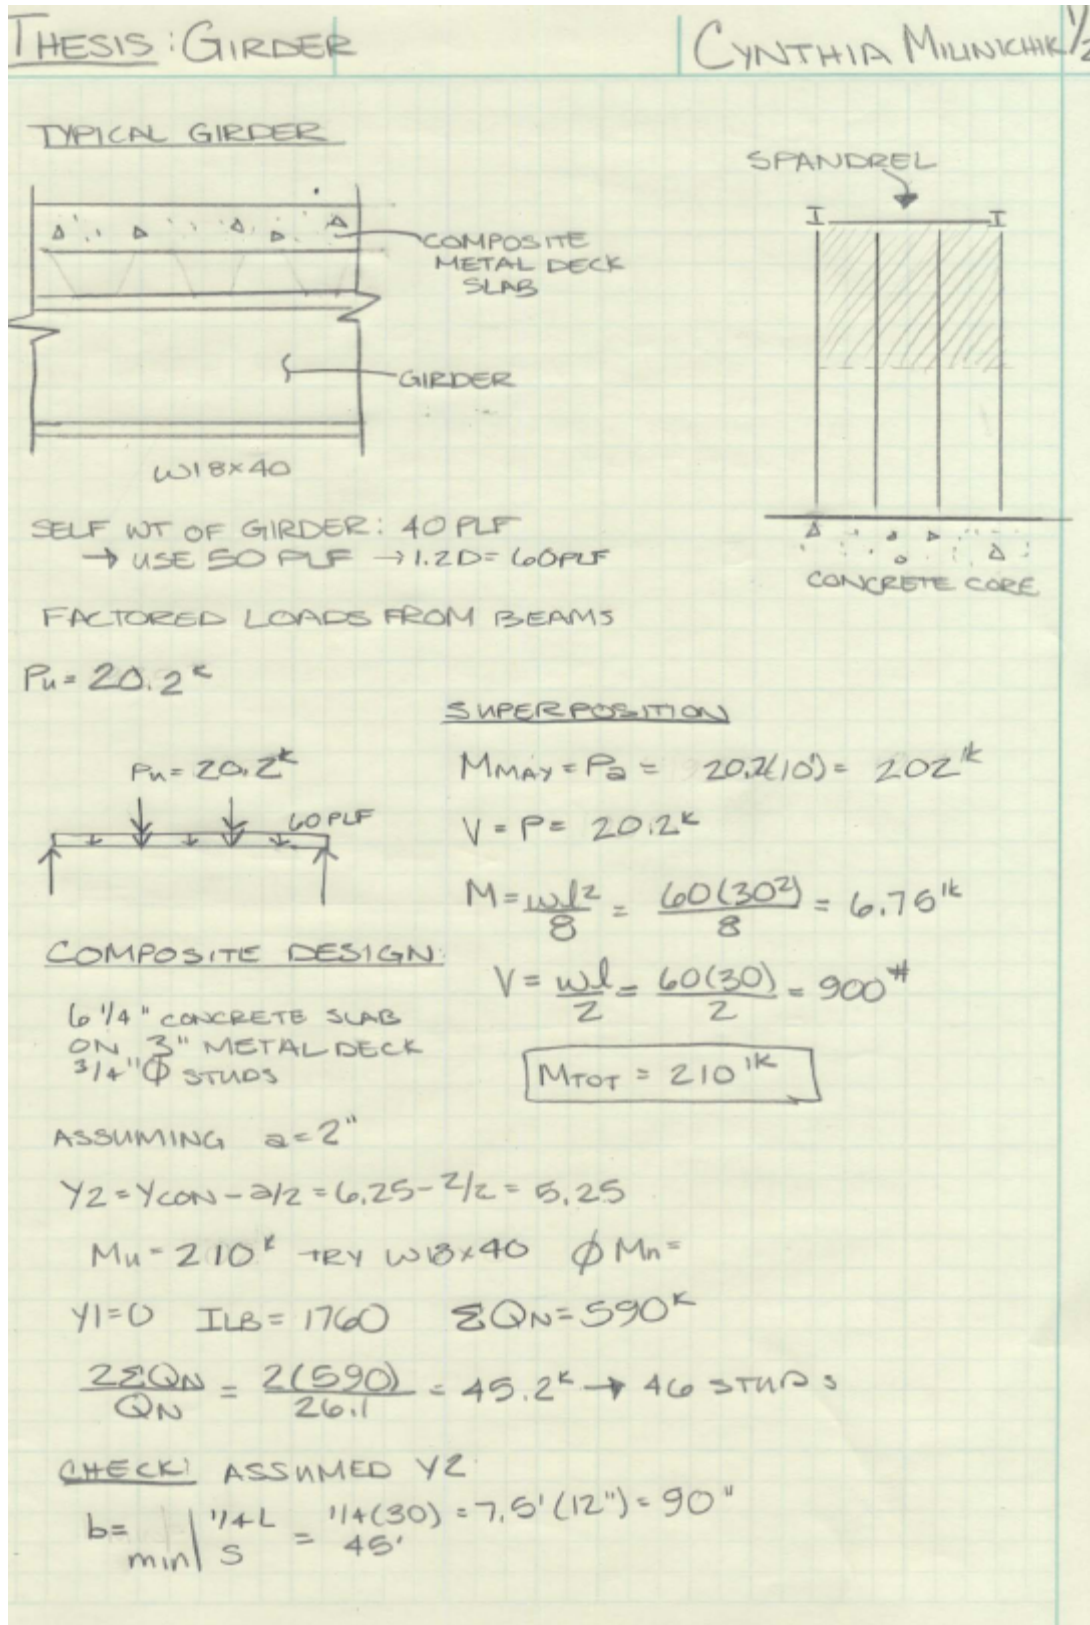 THESIS: GIRDER
CYNTHIA MILINICHIK 1/2
TYPICAL GIRDER
SPANDREL
COMPOSITE
METAL DECK
SLAB
GIRDER
W18×40
CONCRETE CORE
SELF WT OF GIRDER: 40 PLF
→ USE 50 PLF → 1.2D = 60PLF
FACTORED LOADS FROM BEAMS
Pu = 20.2ᵏ
Pu = 20.2ᵏ
60 PLF
SUPERPOSITION
MMAX = Pa = 20.2(10') = 202'ᵏ
V = P = 20.2ᵏ
M = wl²/8 = 60(30²)/8 = 6.75'ᵏ
V = wl/2 = 60(30)/2 = 900#
MTOT = 210'ᵏ
COMPOSITE DESIGN:
6 1/4" CONCRETE SLAB
ON 3" METAL DECK
3/4"Φ STUDS
ASSUMING a = 2"
Y2 = YCON - a/2 = 6.25 - 2/2 = 5.25
Mu = 210ᵏ TRY W18×40 ϕMn =
Y1 = 0 ILB = 1760 ΣQN = 590ᵏ
2ΣQN/QN = 2(590)/26.1 = 45.2ᵏ → 46 STUDS
CHECK: ASSUMED Y2
b = min | 1/4 L = 1/4(30) = 7.5'(12") = 90"
S = 45'